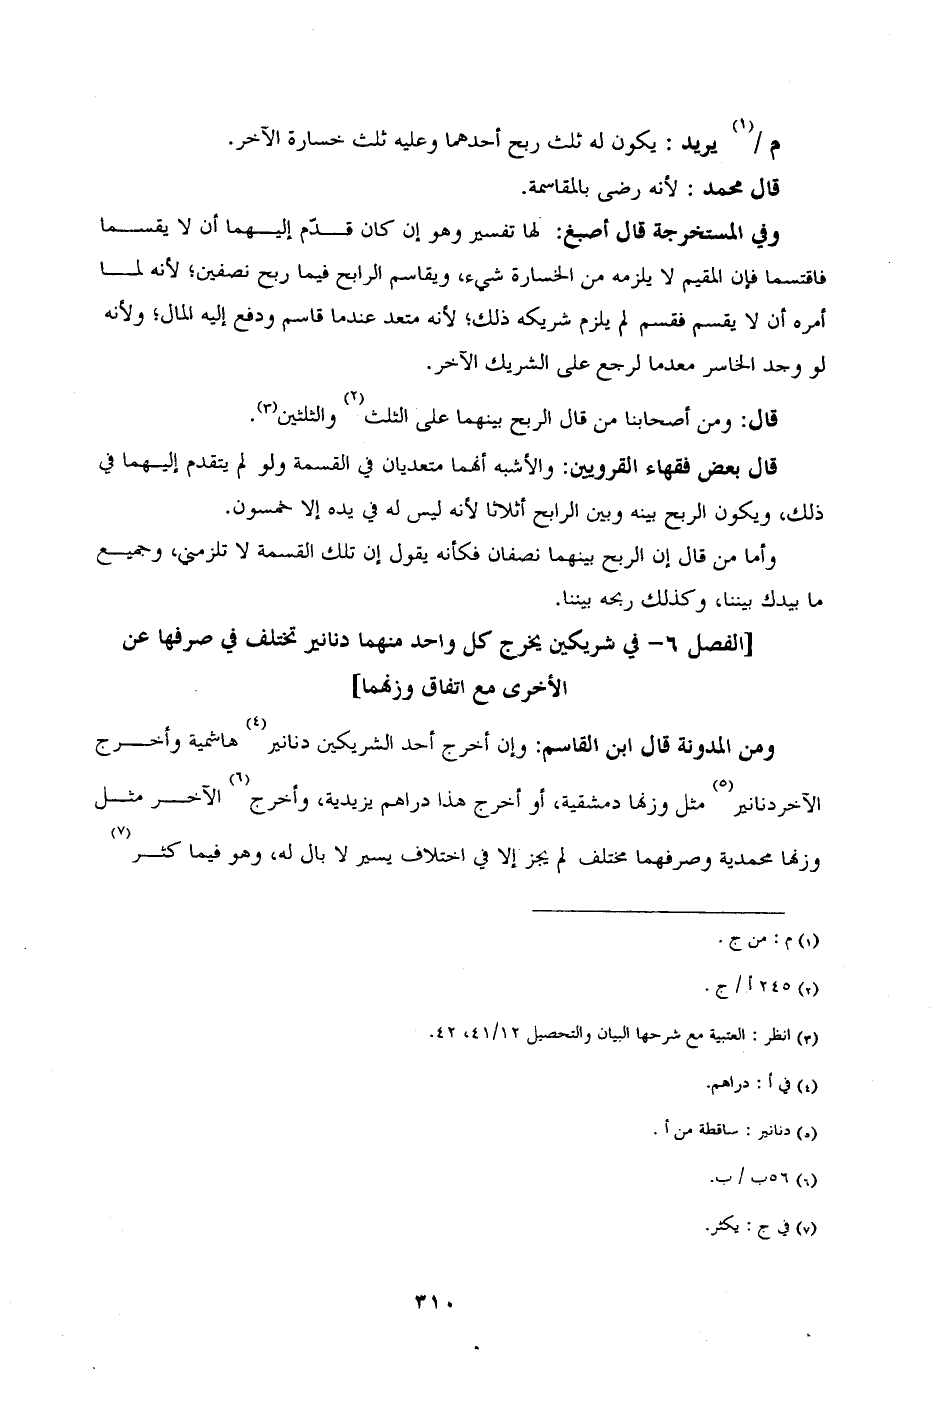 م /(١) يريد : يكون له ثلث ربح أحدهما وعليه ثلث خسارة الآخر.
قال محمد : لأنه رضى بالمقاسمة.
وفي المستخرجة قال أصبغ: لها تفسير وهو إن كان قدّم إليهما أن لا يقسما
فاقتسما فإن المقيم لا يلزمه من الخسارة شيء، ويقاسم الرابح فيما ربح نصفين؛ لأنه لما
أمره أن لا يقسم فقسم لم يلزم شريكه ذلك؛ لأنه متعد عندما قاسم ودفع إليه المال؛ ولأنه
لو وجد الخاسر معدما لرجع على الشريك الآخر.
قال: ومن أصحابنا من قال الربح بينهما على الثلث(٢) والثلثين(٣).
قال بعض فقهاء القرويين: والأشبه أنهما متعديان في القسمة ولو لم يتقدم إليهما في
ذلك، ويكون الربح بينه وبين الرابح أثلاثا لأنه ليس له في يده إلا خمسون.
وأما من قال إن الربح بينهما نصفان فكأنه يقول إن تلك القسمة لا تلزمني، وجميع
ما بيدك بيننا، وكذلك ربحه بيننا.
[الفصل ٦- في شريكين يخرج كل واحد منهما دنانير تختلف في صرفها عن
الأخرى مع اتفاق وزنهما]
ومن المدونة قال ابن القاسم: وإن أخرج أحد الشريكين دنانير(٤) هاشمية وأخرج
الآخردنانير(٥) مثل وزنها دمشقية، أو أخرج هذا دراهم يزيدية، وأخرج(٦) الآخر مثل
وزنها محمدية وصرفهما مختلف لم يجز إلا في اختلاف يسير لا بال له، وهو فيما كثر(٧)
(١) م : من ج .
(٢) ٢٤٥ أ / ج .
(٣) انظر : العتبية مع شرحها البيان والتحصيل ٤١/١٢، ٤٢.
(٤) في أ : دراهم.
(٥) دنانير : ساقطة من أ .
(٦) ٥٦ب / ب.
(٧) في ج : يكثر.
٣١٠